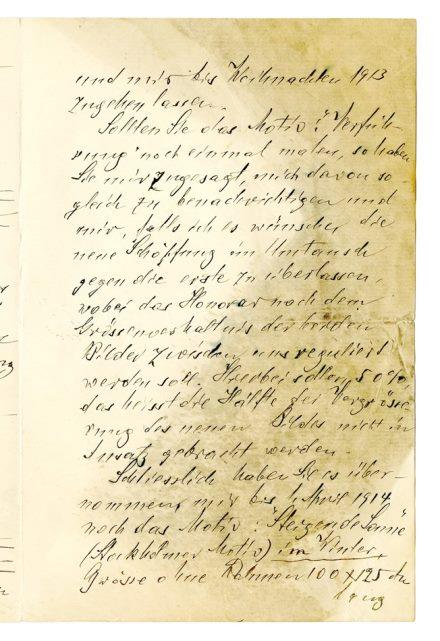 und mir bis Weihnachten 1913
zugehen lassen.
Sollten Sie das Motiv: "Verfüh-
rung" noch einmal malen, so haben
Sie mir zugesagt, mich davon so-
gleich zu benachrichtigen und
mir, falls ich es wünsche, die
neue Schöpfung im Umtausch
gegen die erste zu überlassen,
wobei das Honorar nach dem
Grössenverhältnis der beiden
Bilder zwischen uns reguliert
werden soll. Hierbei sollen 50%,
das heisst die Hälfte der Vergrösse
rung des neuen Bildes nicht in
Ansatz gebracht werden.
Schliesslich haben Sie es über-
nommen, mir bis 1 April 1914
noch das Motiv: "Steigende Sonne"
(Stockholmer Motiv) im Winter,
Grösse ohne Rahmen 100 x 125 cm